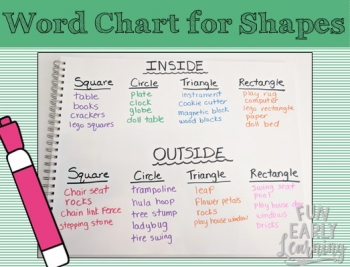 Word Chart for Shapes
INSIDE
Square Circle Triangle Rectangle
table plate instrument play rug
books clock cookie cutter computer
crackers globe magnetic block lego rectangle
lego squares doll table wood blocks paper
doll bed
OUTSIDE
Square Circle Triangle Rectangle
Chair seat trampoline leaf Swing seat
rocks hula hoop Flower petals pool
Chain link Fence tree stump rocks play house door
Stepping stone ladybug play house window windows
tire swing bricks
FUN
EARLY
Learning